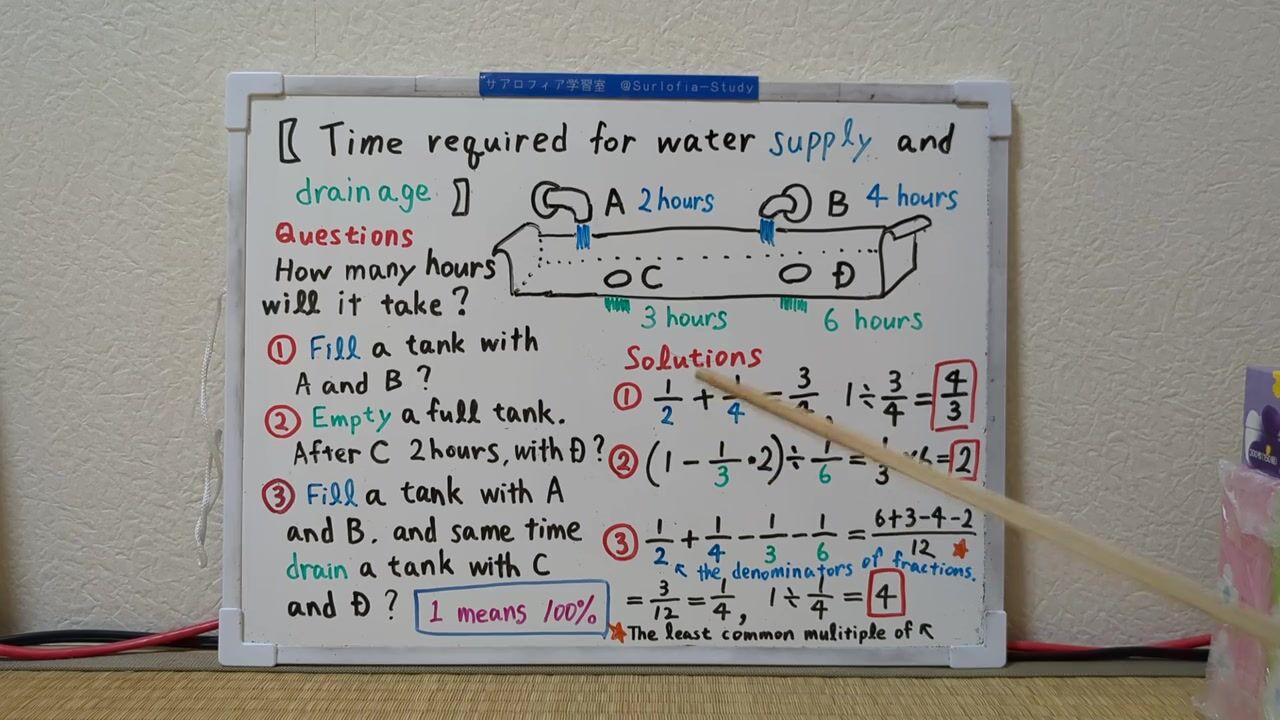 サアロフィア学習室 @Surlofia-Study
【 Time required for water supply and
drainage 】
A 2 hours
B 4 hours
C
D
3 hours
6 hours
Questions
How many hours
will it take?
① Fill a tank with
A and B?
② Empty a full tank.
After C 2 hours, with D?
③ Fill a tank with A
and B. and same time
drain a tank with C
and D?
1 means 100%
Solutions
① 1/2 + 1/4 = 3/, 1÷3/4 = 4/3
② (1 - 1/3 • 2) ÷ 1/6 = 1/3 ×6 = 2
③ 1/2 + 1/4 - 1/3 - 1/6 = 6+3-4-2/12 ★
↖ the denominators of fractions.
= 3/12 = 1/4, 1÷1/4 = 4
★The least common mulitiple of ↖